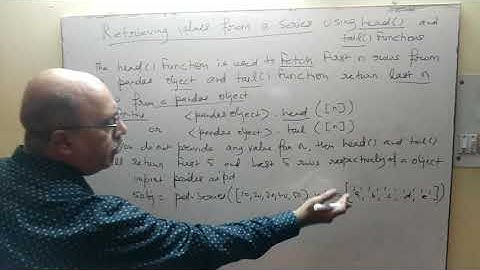 Retrieving values from a Series using head() and
tail() functions
The head() function is used to fetch first n rows from
pandas object and tail() function return last n
from a pandas object
<pandas object>. head ([n])
or <pandas object>. tail ([n])
you do not provide any value for n, then head() and tail()
return first 5 and last 5 rows respectively of a object
import pandas as pd
Sobj = pd.Series([10,20,30,40,50], ['a','b','c','d','e'])